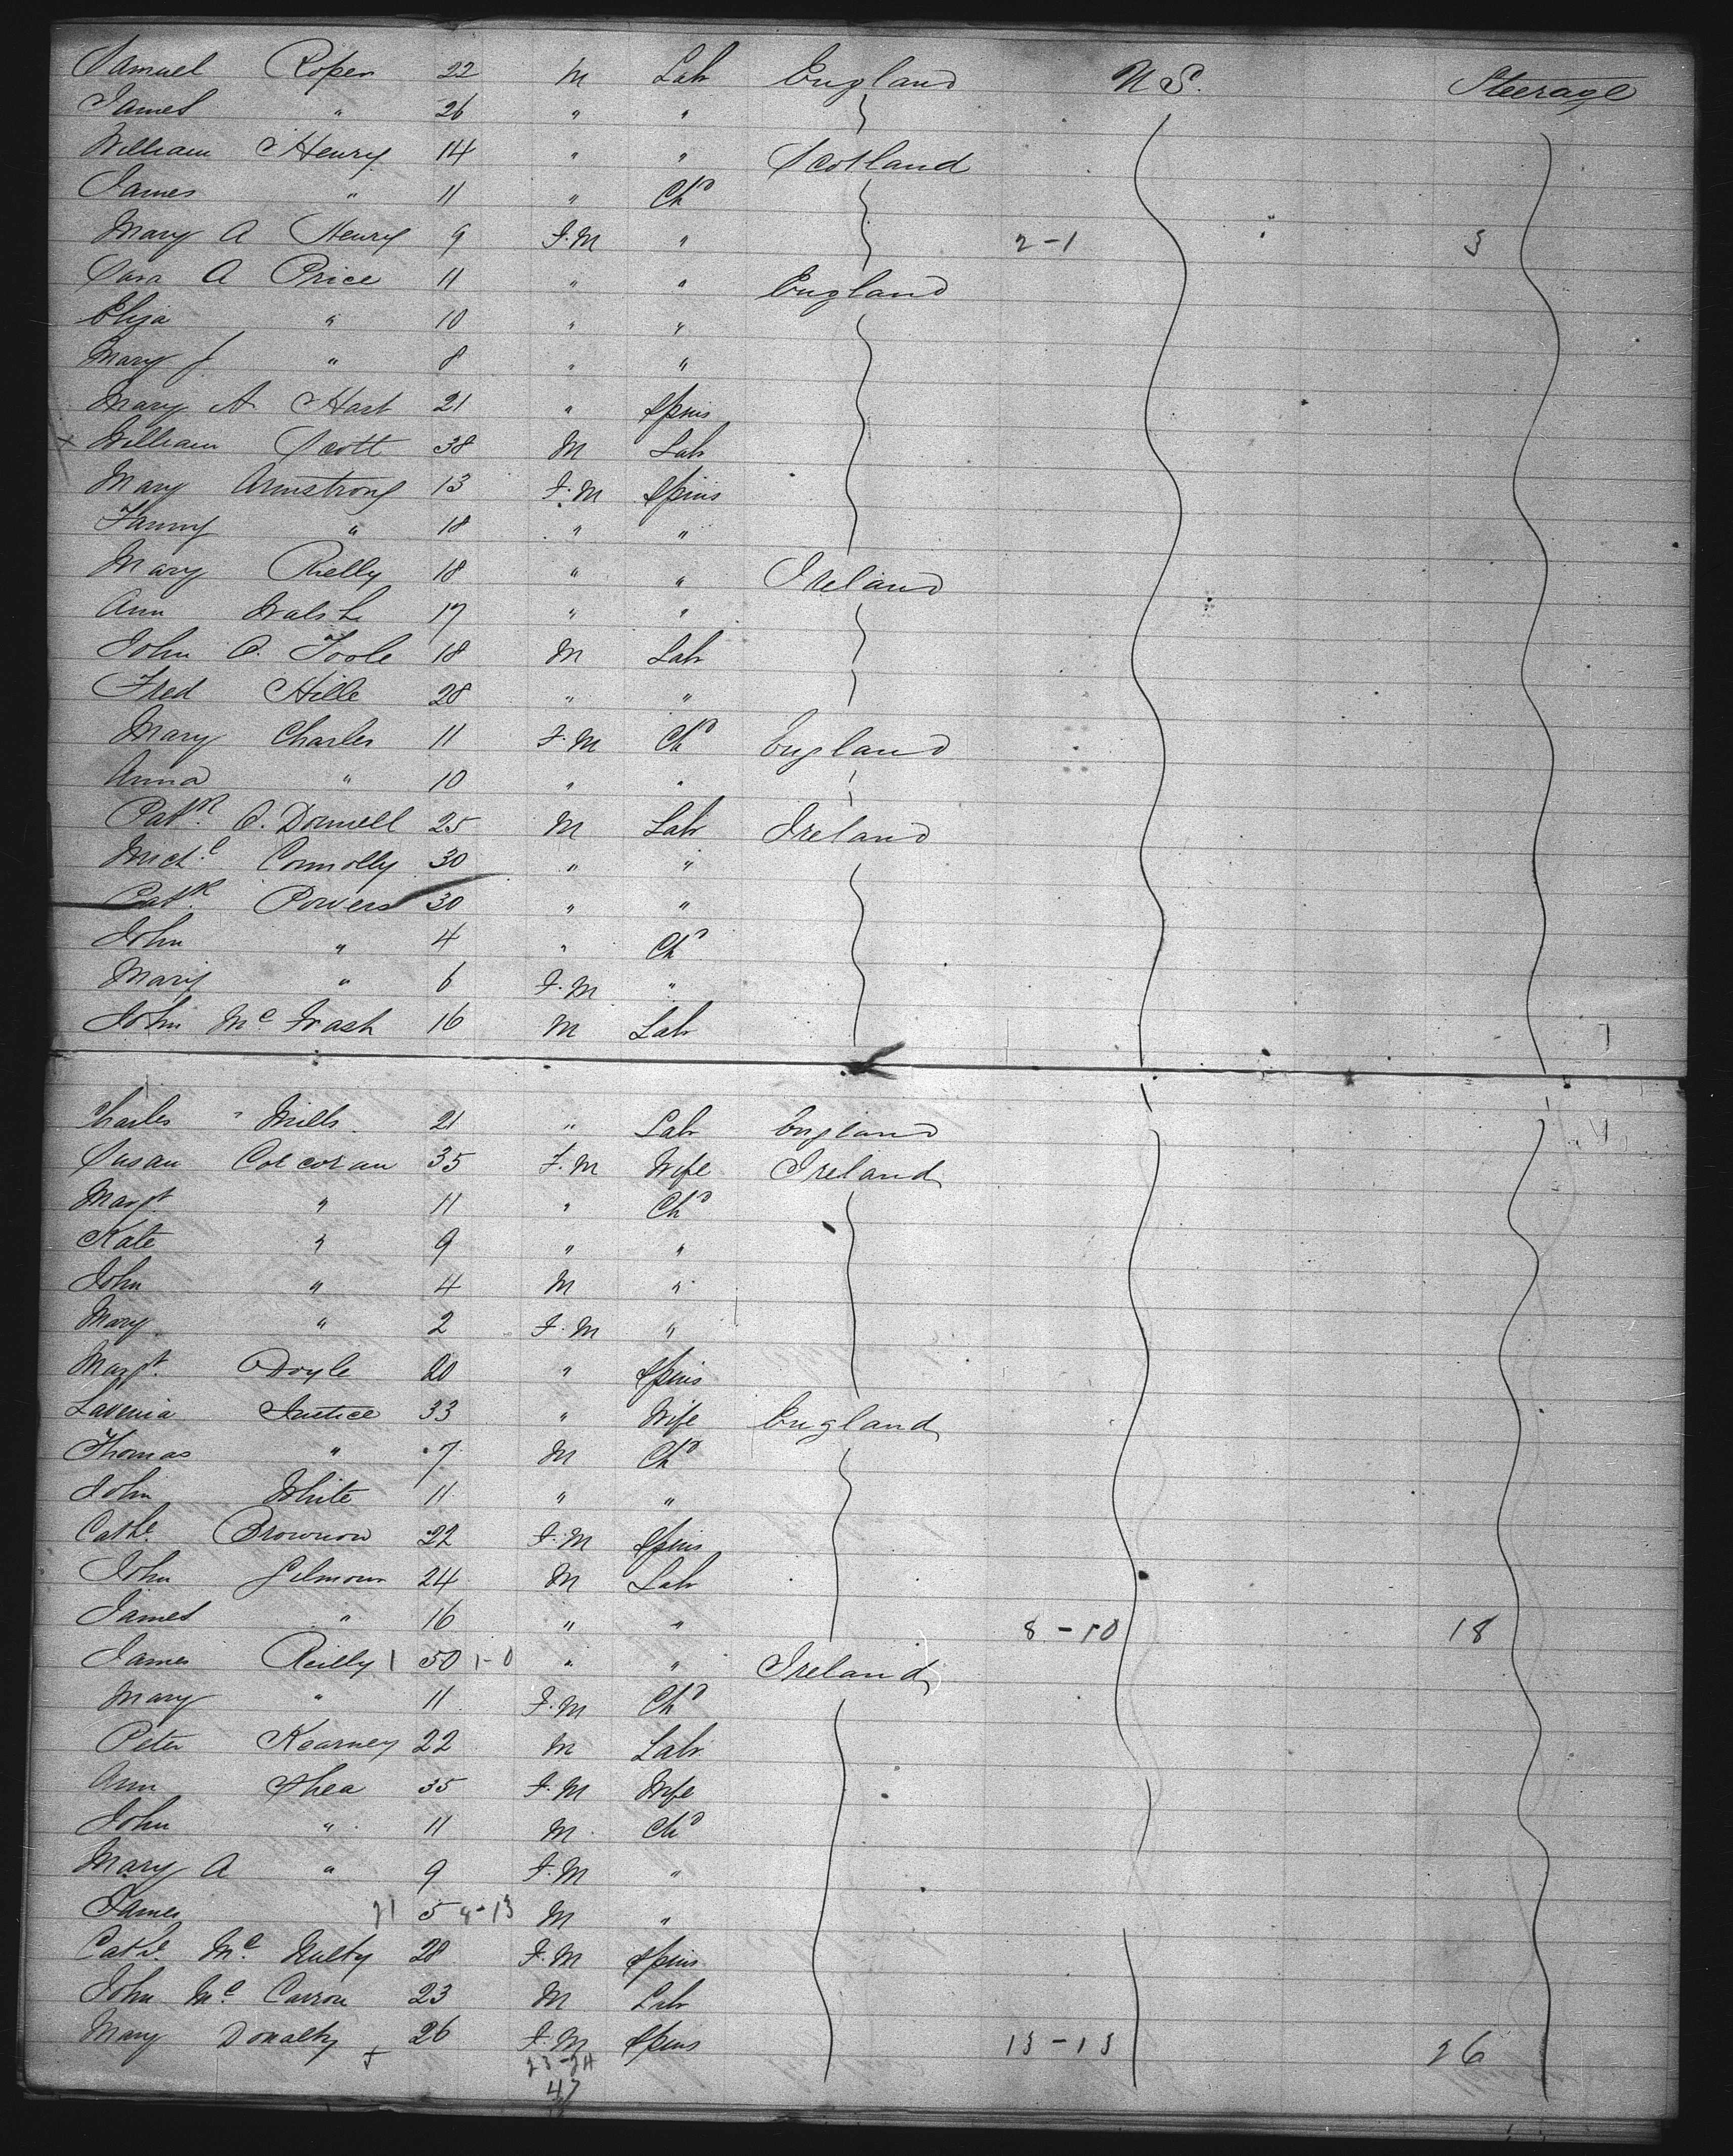 Samuel Roper 22 M Lab England U S. Steerage
James " 26 " "
William Henry 14 " " Scotland
James " 11 " Chd
Mary A Henry 9 F.M " 2-1 3
Sara A Price 11 " " England
Eliza " 10 " "
Mary J " 8 " "
Mary A Hart 21 " Spins
+ William Scott 38 M Lab
Mary Armstrong 13 F.M Spins
Fanny " 18 " "
Mary Reilly 18 " " Ireland
Ann Walsh 17 " "
John O. Toole 18 M Lab
Fred Hille 28 " "
Mary Charles 11 F.M Chd England
Anna " 10 " "
Patk O. Donnell 25 M Lab Ireland
Michl Connolly 30 " "
Patk Powers 30 " "
John " 4 " Chd
Mary " 6 F.M "
John Mc 16 M Lab
Charles Mills 21 " Lab England
Susan Corcoran 35 F.M Wife Ireland
Margt " 11 " Chd
Kate " 9 " "
John " 4 M "
Mary " 2 F.M "
Margt Doyle 20 " Spins
Lavenia Justice 33 " Wife England
Thomas " 7 M Chd
John White 11 " "
Cathe 22 F.M Spins
John Gilmour 24 M Lab
James " 16 " " 8-10 18
James Reilly 1 50 1-0 " " Ireland
Mary " 11 F.M Chd
Peter Kearney 22 M Lab
Ann Shea 35 F.M Wife
John " 11 M Chd
Mary A " 9 F.M "
James 21 5 8-13 M "
Cathe Mc Nulty 28 F.M Spins
John Mc Carron 23 M Lab
Mary Donalty + 26 F.M Spins 13-13 26
23-24
47